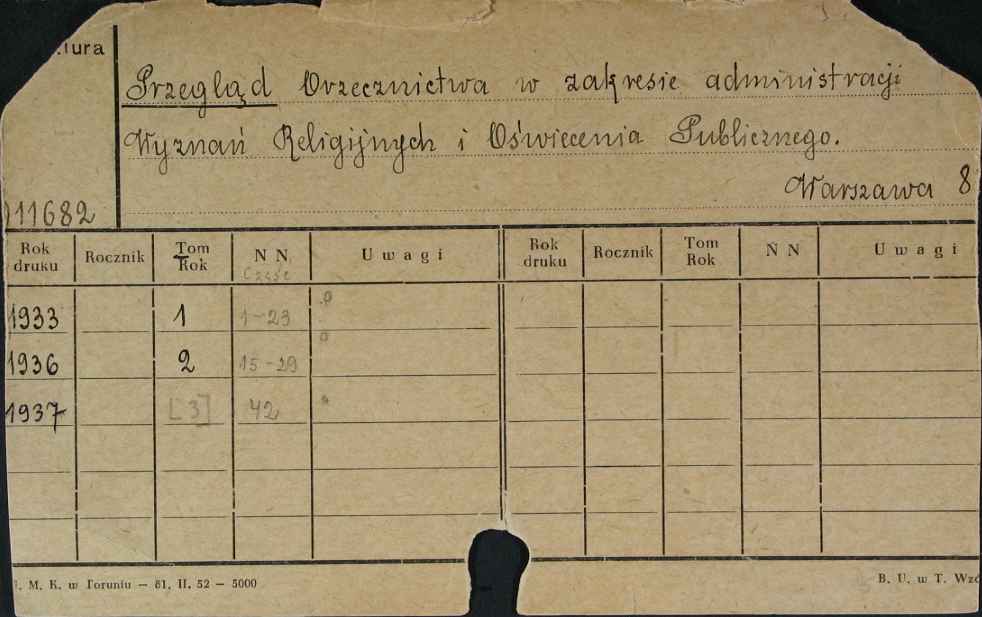 tura
Przegląd Orzecznictwa w zakresie administracji
Wyznań Religijnych i Oświecenia Publicznego.
Warszawa 8
011682
Rok druku Rocznik Tom Rok N N Uwagi Rok druku Rocznik Tom Rok N N Uwagi
Część
1933 1 1-23
1936 2 15-29
1937 [3] 42
M. K. w Toruniu — 61. II. 52 — 5000
B. U. w T. Wzó